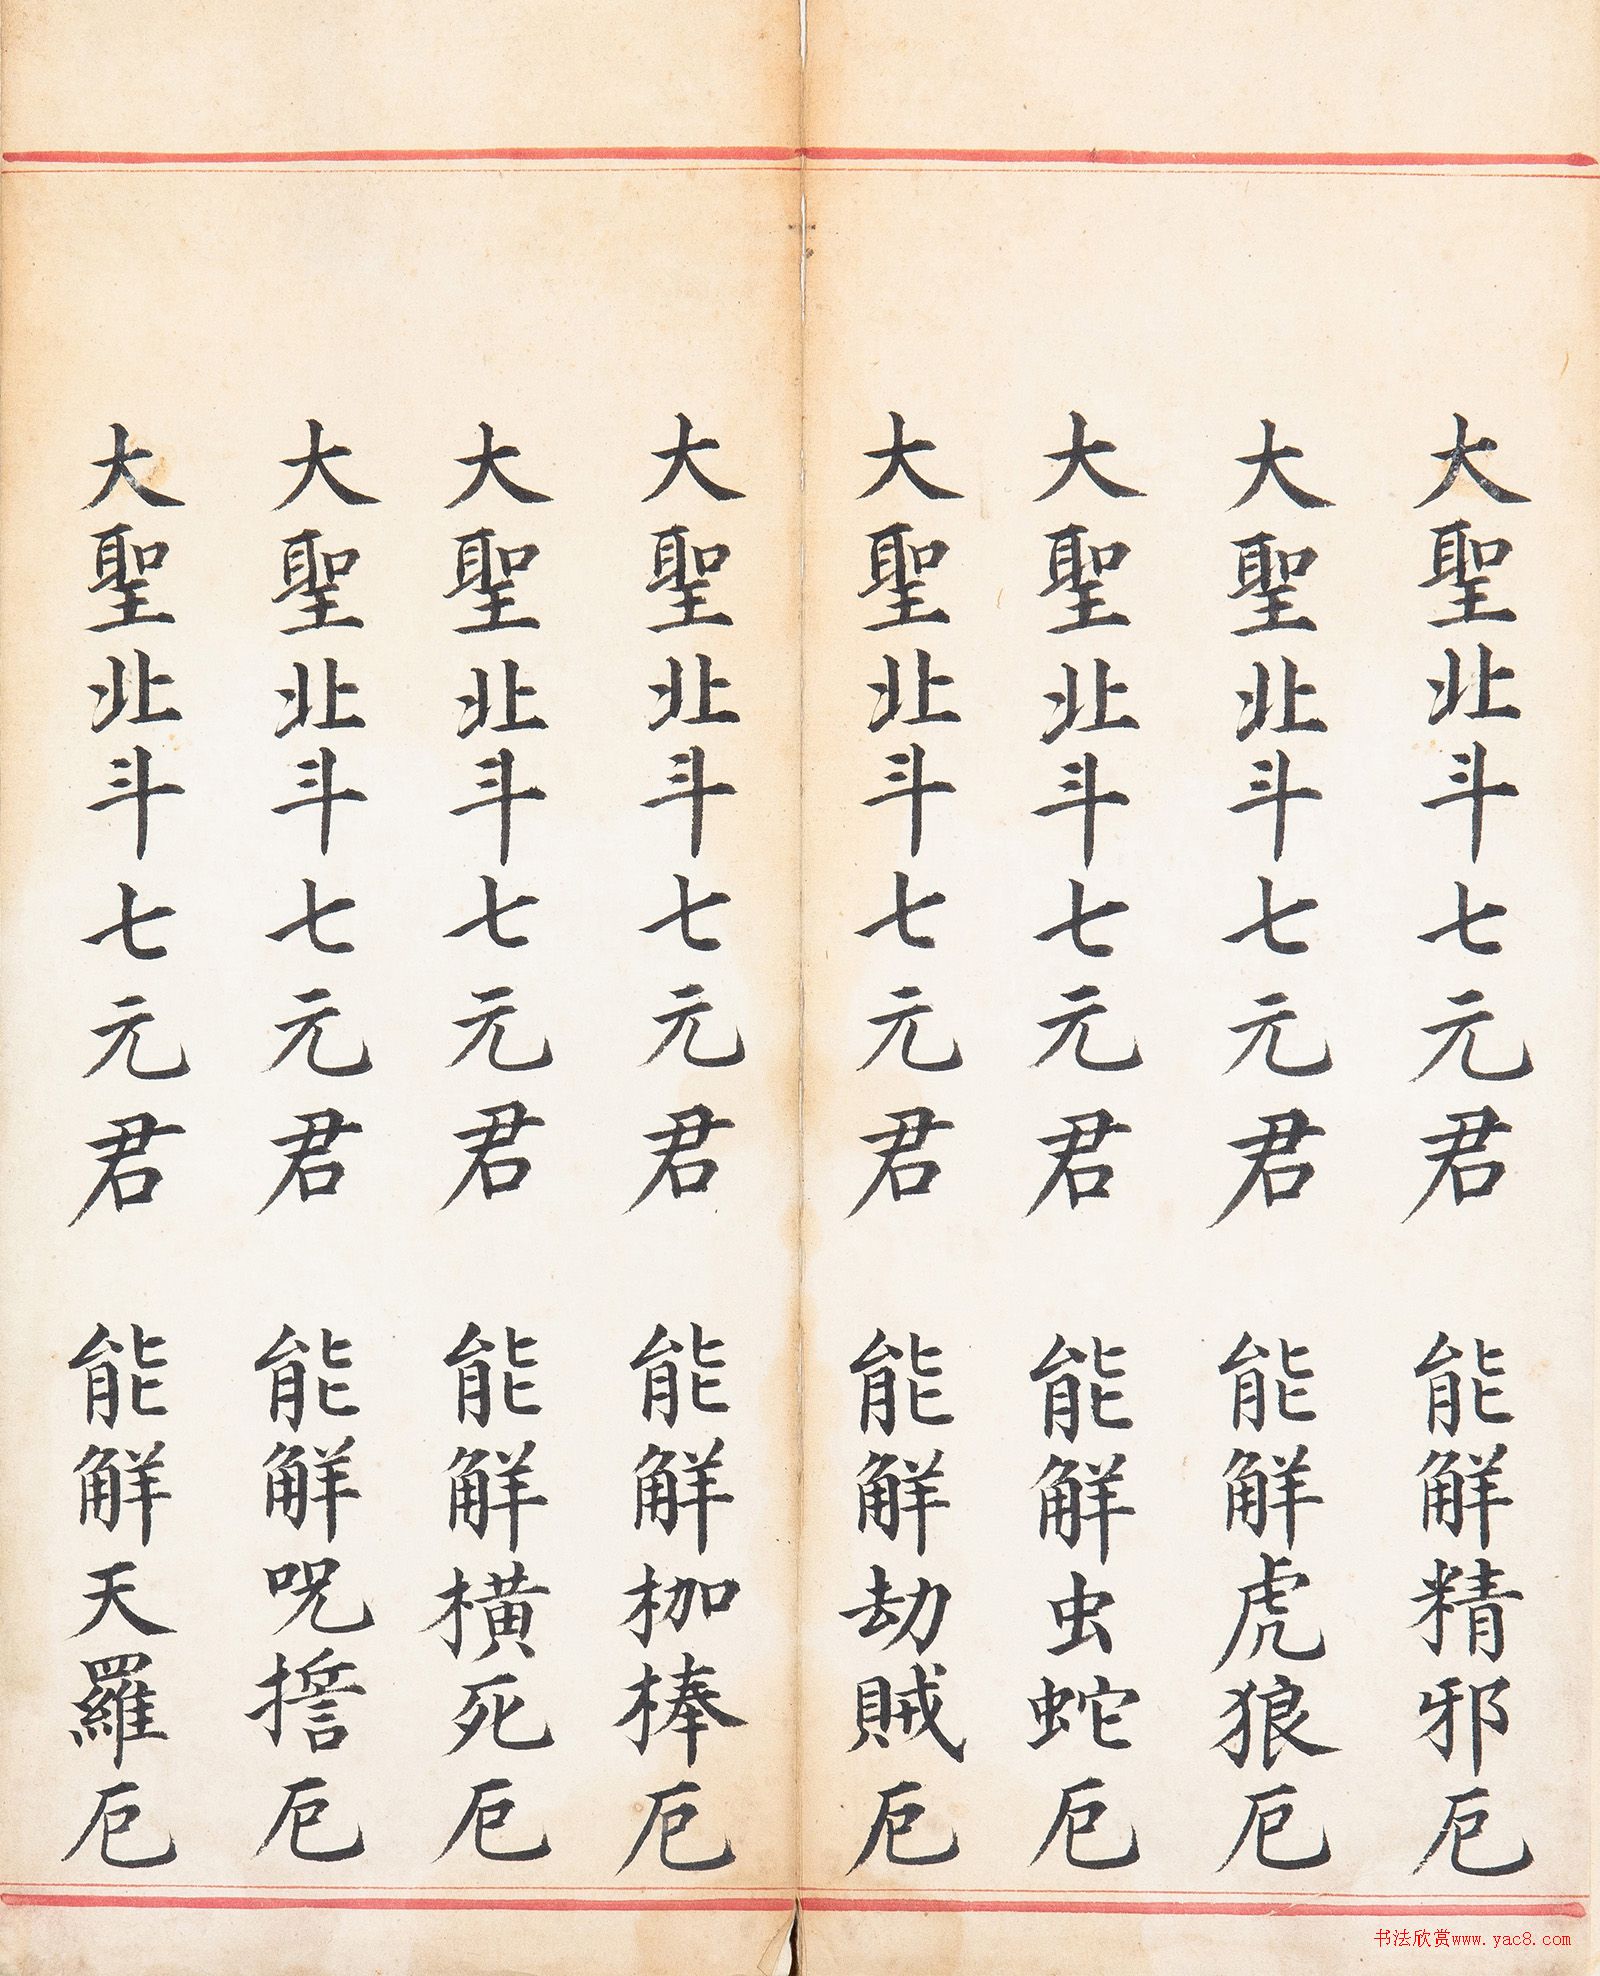 大聖北斗七元君 能解精邪厄
大聖北斗七元君 能解虎狼厄
大聖北斗七元君 能解虫蛇厄
大聖北斗七元君 能解劫賊厄
大聖北斗七元君 能解枷棒厄
大聖北斗七元君 能解橫死厄
大聖北斗七元君 能解咒誓厄
大聖北斗七元君 能解天羅厄
书法欣赏www.yac8.com